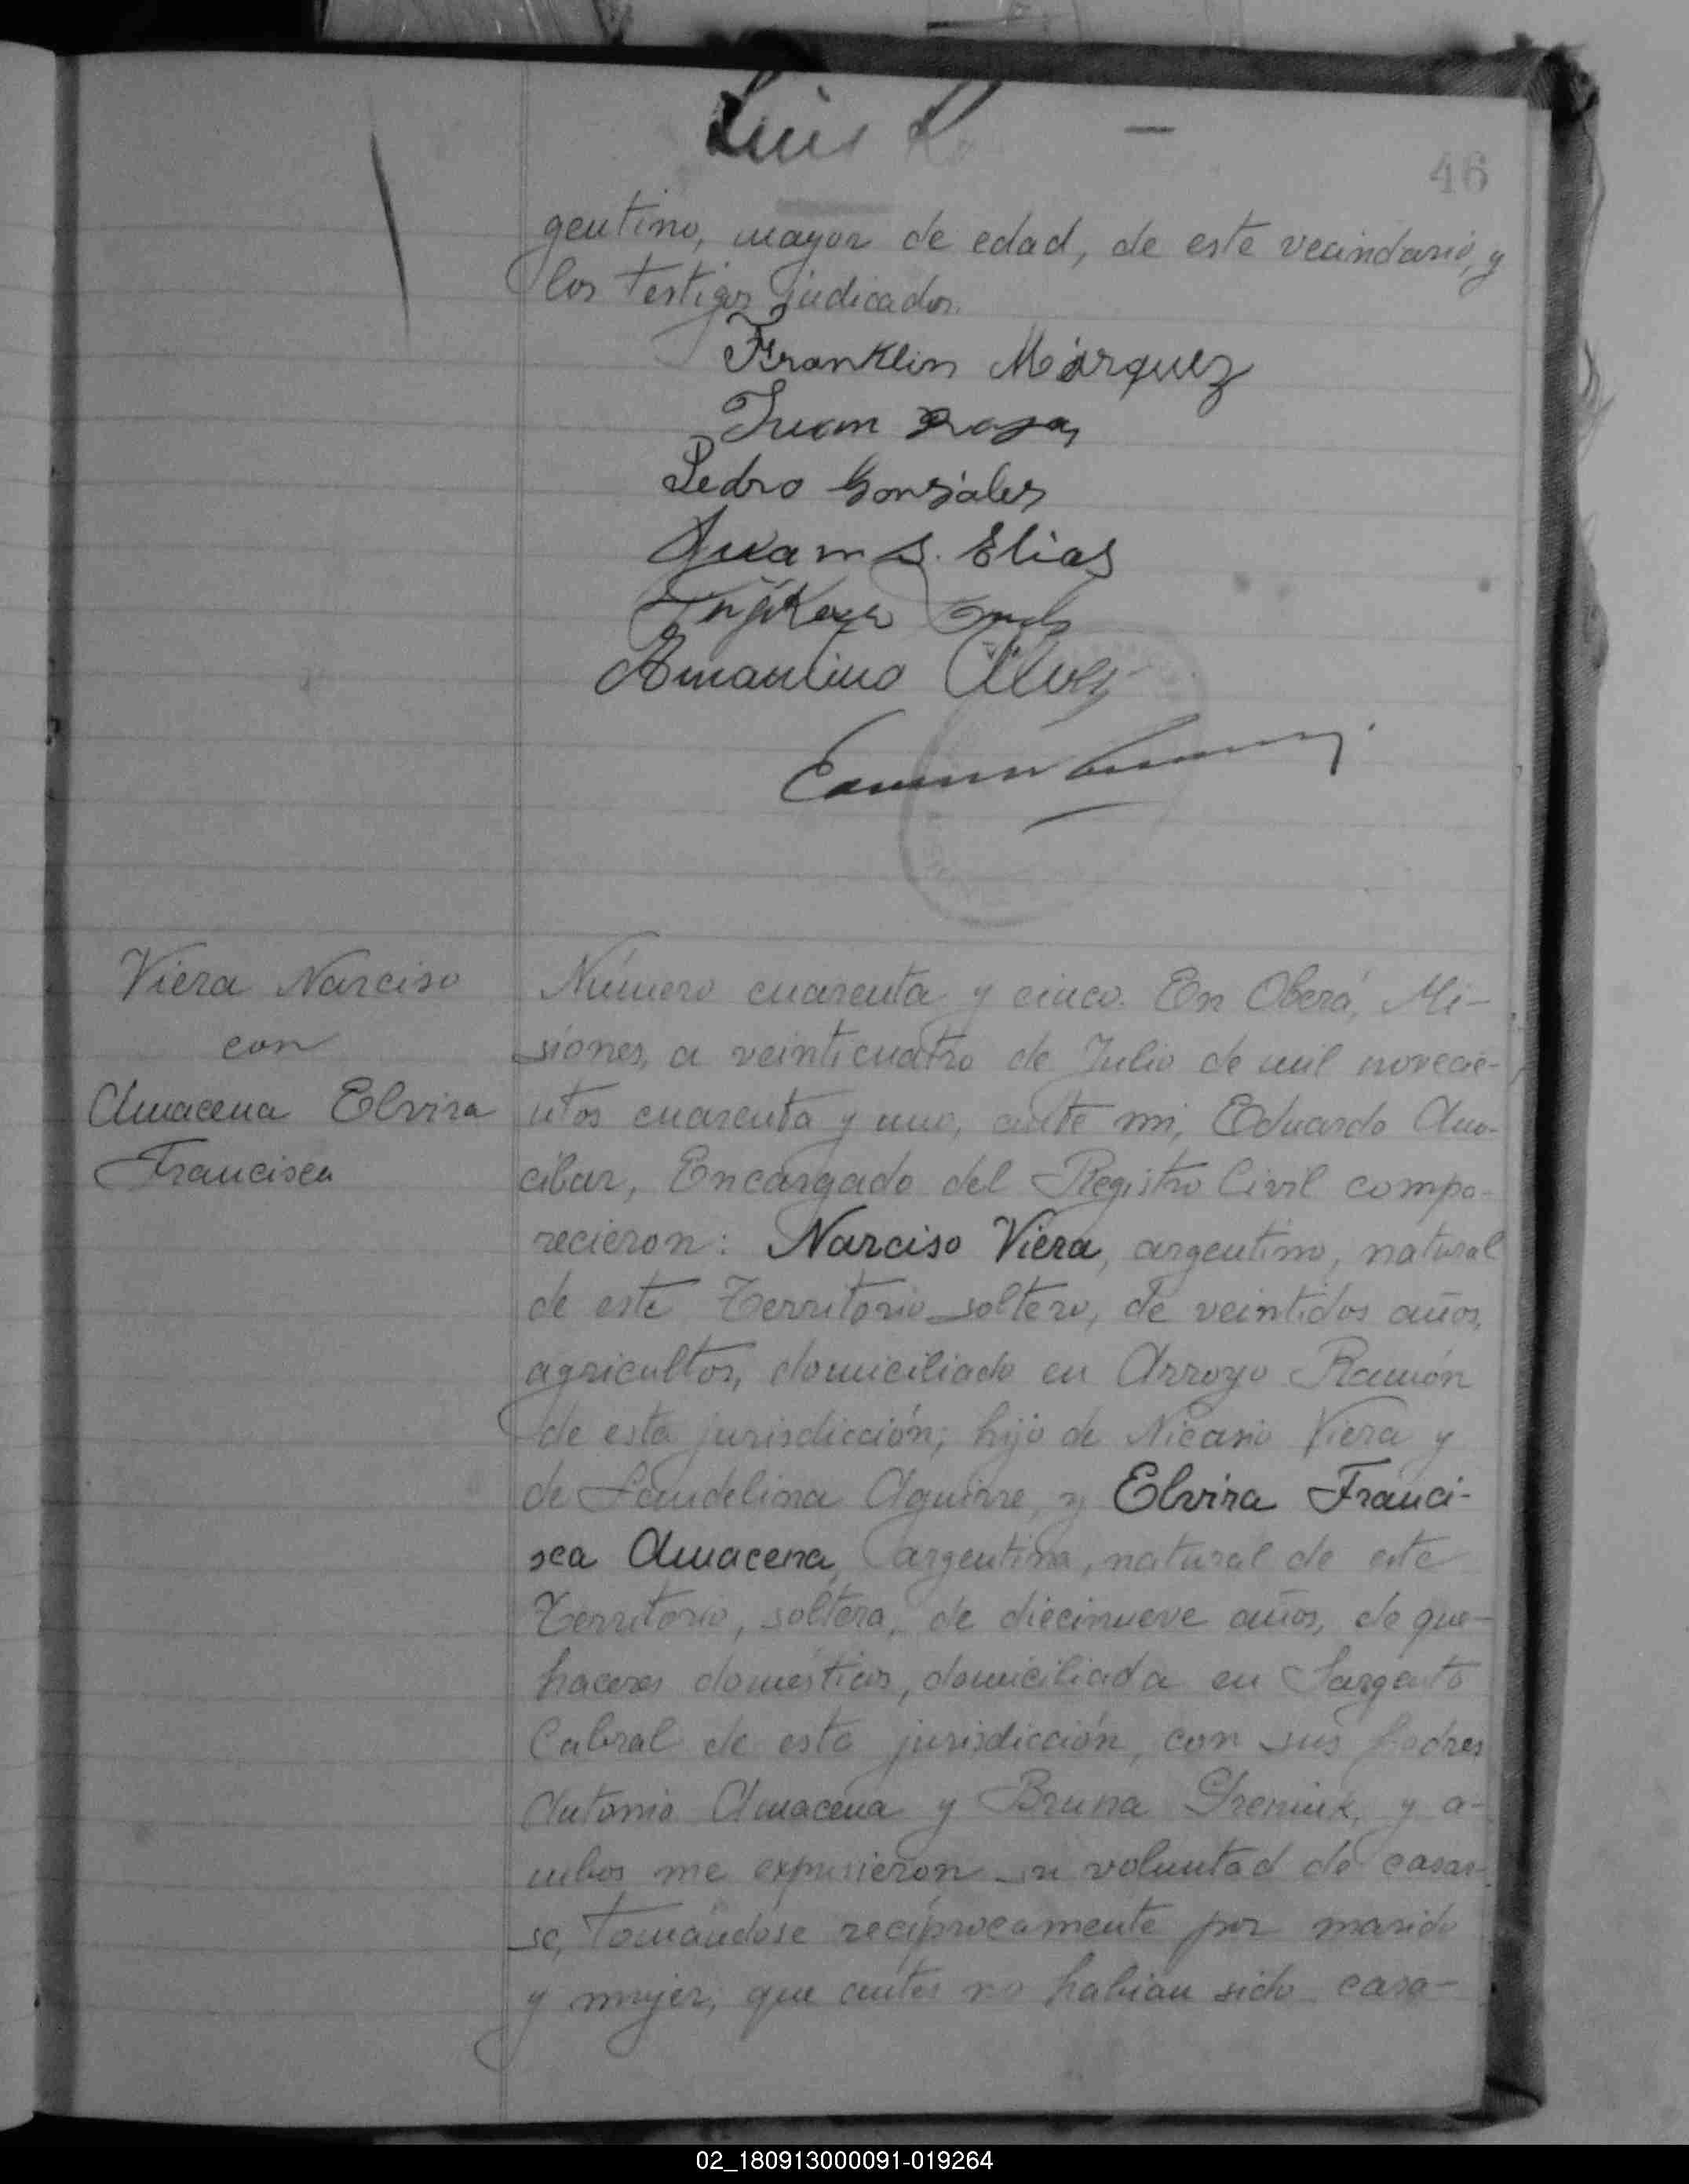 Luis
46
gentino, mayor de edad, de este vecindario, y
los testigos indicados.
Franklin Márquez
Juan
Pedro Gonsáles
Juan S. Elias
Amantino Alves
Viera Narciso
con
Amacena Elvira
Francisca
Número cuarenta y cinco. En Oberá, Mi-
siones, a veinticuatro de Julio de mil novecie-
ntos cuarenta y uno, ante mi, Eduardo Amo-
cibar, Encargado del Registro Civil compa-
recieron: Narciso Viera, argentino, natural
de este Territorio soltero, de veintidos años,
agricultor, domiciliado en Arroyo Ramón
de esta jurisdicción; hijo de Nicasio Viera y
de Laudelina Aguirre, y Elvira Franci-
sca Amacena, argentina, natural de este
Territorio, soltera, de diecinueve años, de que-
haceres domésticos, domiciliada en Sargento
Cabral de esta jurisdicción, con sus padres
Antonio Amacena y Bruna y a-
mbos me expusieron su voluntad de casar-
se, tomándose recíprocamente por marido
y mujer; que antes no habían sido casa-
02_180913000091-019264